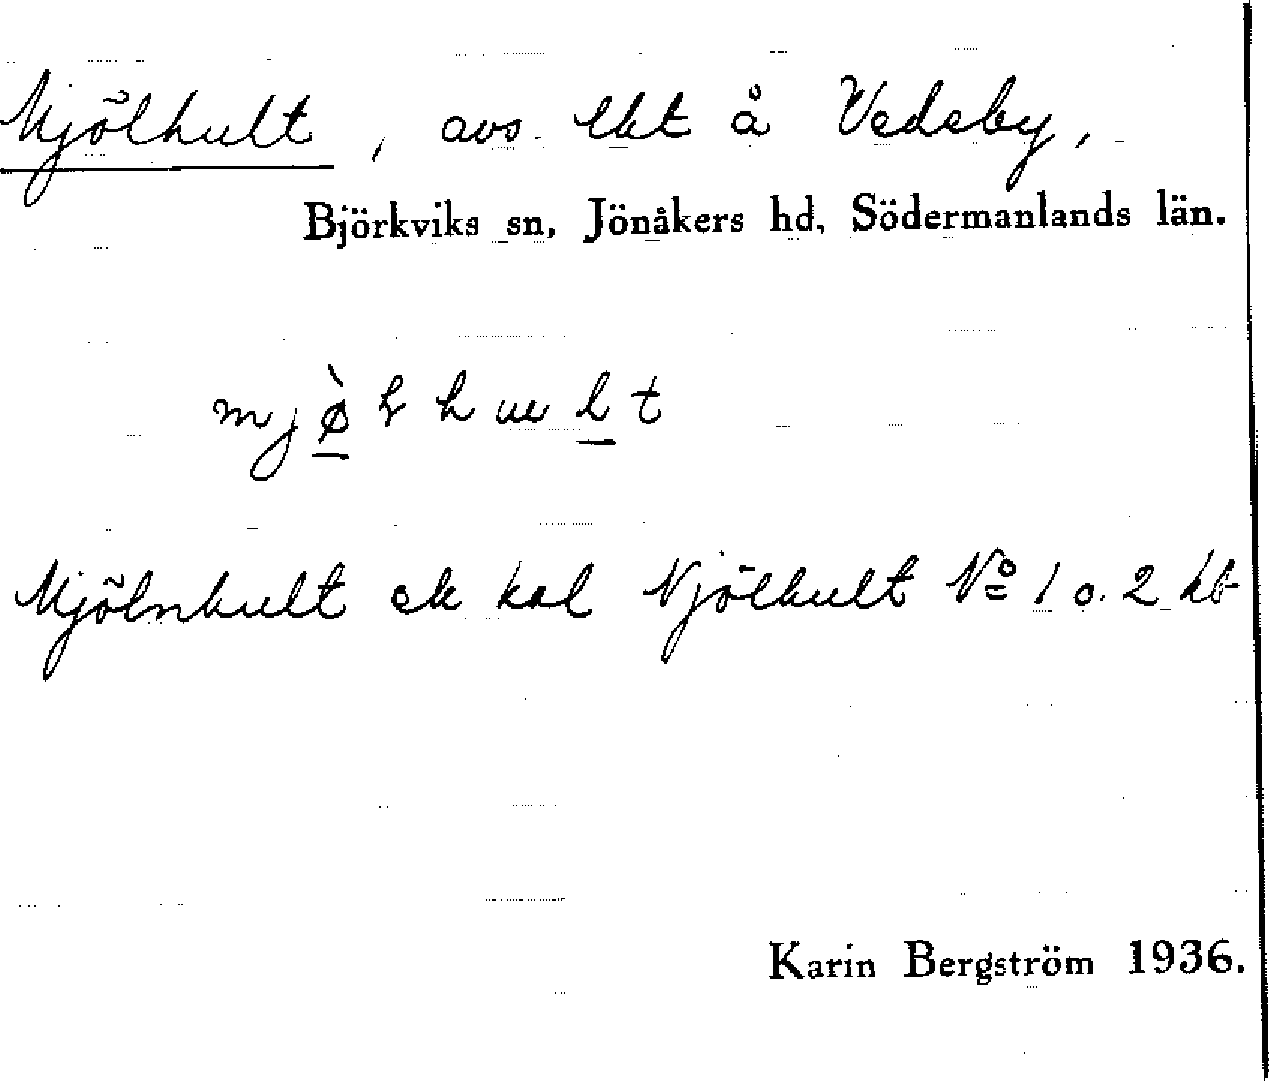 Mjölhult, avs. lht å Vedeby,
Björkviks sn, Jönåkers hd, Södermanlands län.
Mjölnhult ek kal Njölhult No 1 o. 2 hb
Karin Bergström 1936.